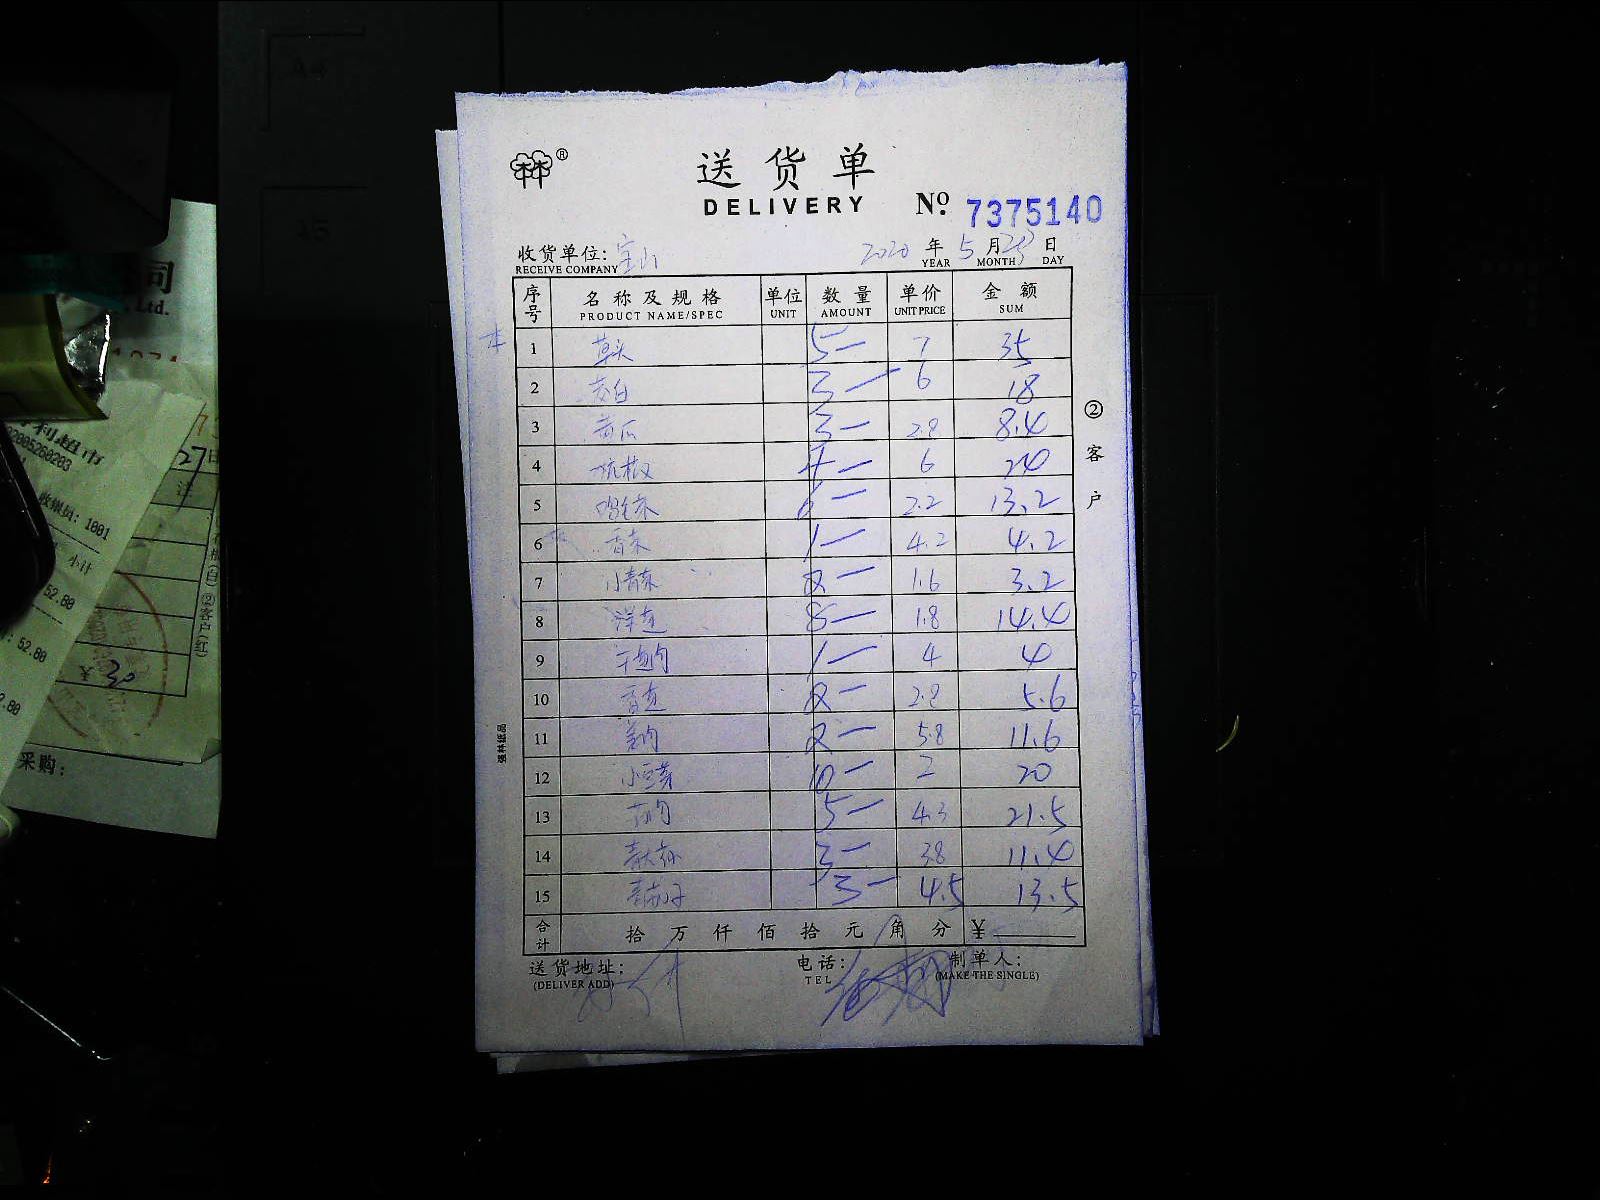 送货单
DELIVERY
№ 7375140
收货单位: 宝山 2020 年 5 月 日
RECEIVE COMPANY YEAR MONTH DAY
序号 名称及规格 单位 数量 单价 金额
PRODUCT NAME/SPEC UNIT AMOUNT UNIT PRICE SUM
1 草头 5 7 35
2 茭白 3 6 18
3 黄瓜 3 2.8 8.4
4 杭椒 4 6 24
5 鸡毛菜 6 2.2 13.2
6 香菜 1 4.2 4.2
7 小青菜 2 1.6 3.2
8 洋 8 1.8 14.4
9 1 4 4
10 2 2.8 5.6
11 2 5.8 11.6
12 小豆芽 10 2 20
13 5 4.3 21.5
14 3 3.8 11.4
15 3 4.5 13.5
合计 拾 万 仟 佰 拾 元 角 分 ¥
送货地址: 电话: 制单人:
(DELIVER ADD) TEL (MAKE THE SINGLE)
②客户
强林纸品
利超市
2005260203
收银员: 1001
小计
52.80
: 52.80
¥ 30
②客户(红)
采购:
司
Ltd.